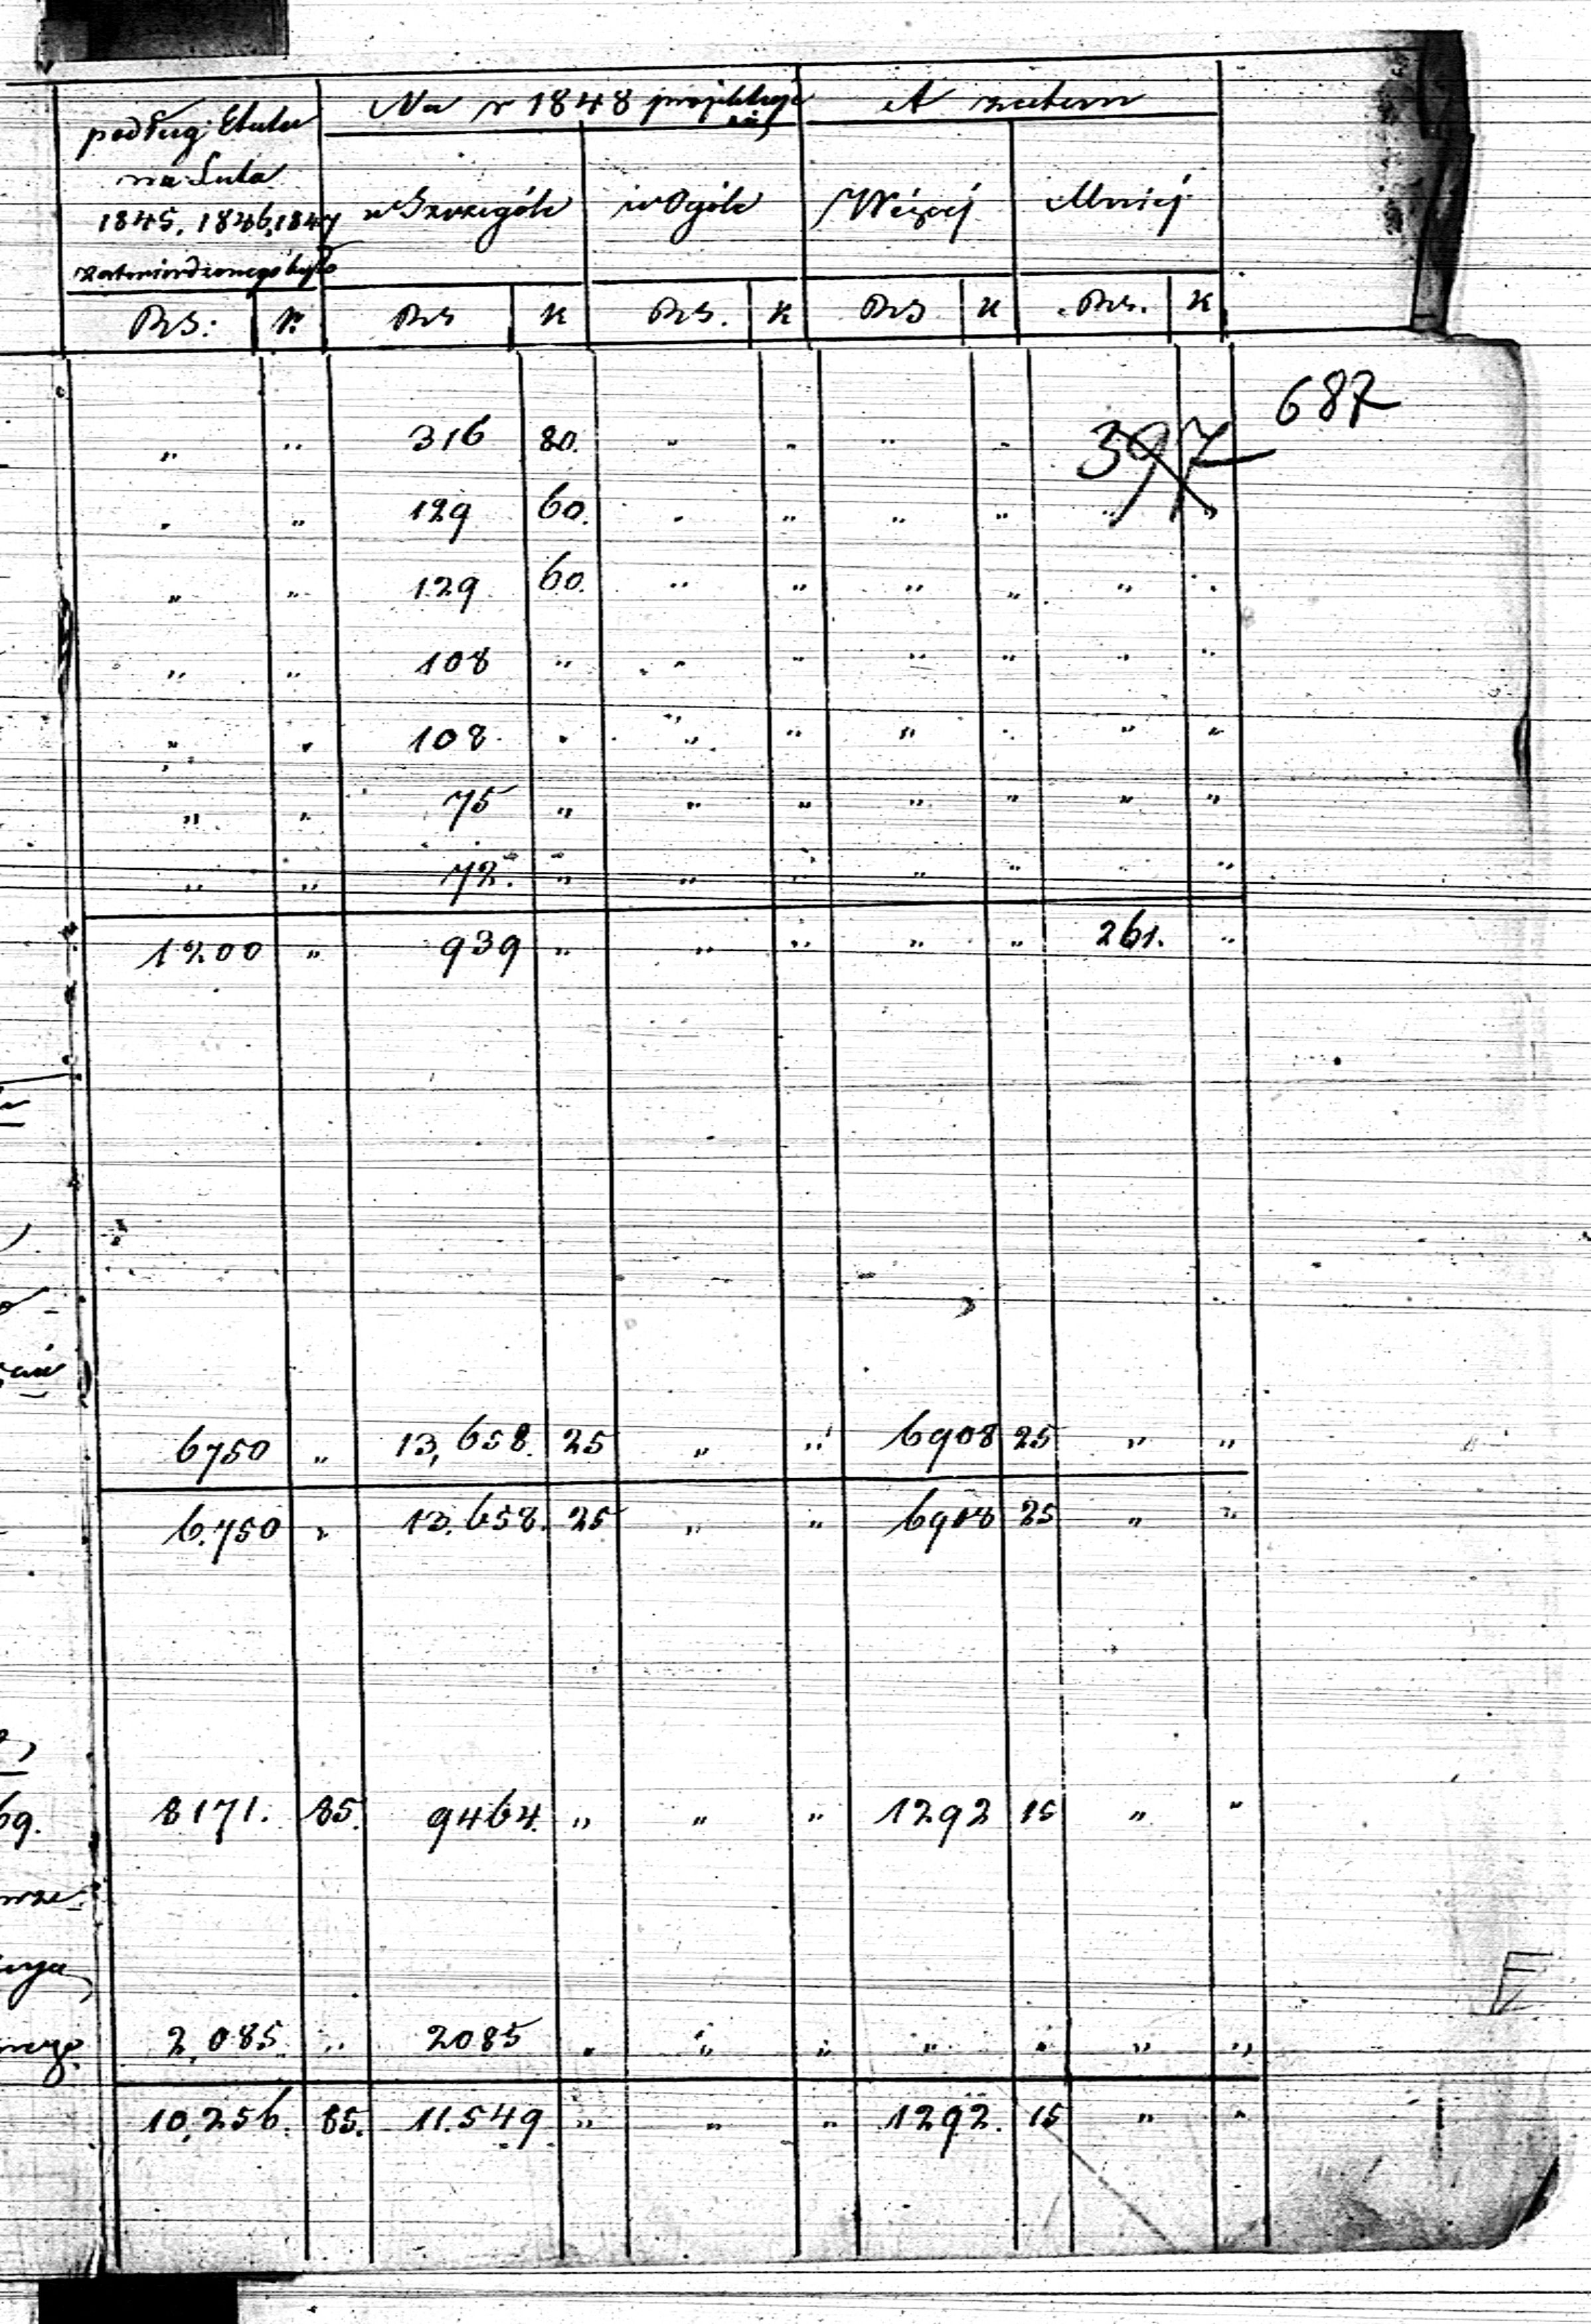 Na r 1848 projektuje się
A zatem
podług Etatu
na Lata
1845, 1846, 1847
zatwierdzonego było
w Szczególe w Ogóle Więcej Mniej
RS: K. RS K RS. K RS K RS. K
687
397
„ „ 316 80. „ „ „ „
„ „ 129 60. „ „ „ „ „ „
„ „ 129 60. „ „ „ „ „ „
„ „ 108 „ „ „ „ „ „ „
„ „ 108 „ „ „ „ „ „ „
„ „ 75 „ „ „ „ „ „ „
„ „ 72. „ „ „ „ „ „ „
1200 „ 939 „ „ „ „ „ 261. „
6750 „ 13,658. 25 „ „ 6908 25 „ „
6.750 „ 13.658. 25 „ „ 6908 25 „ „
69. 8171. 85. 9464. „ „ „ 1292 15 „ „
2,085. „ 2085 „ „ „ „ „ „ „
10,256. 85. 11.549 „ „ „ 1292. 15 „ „